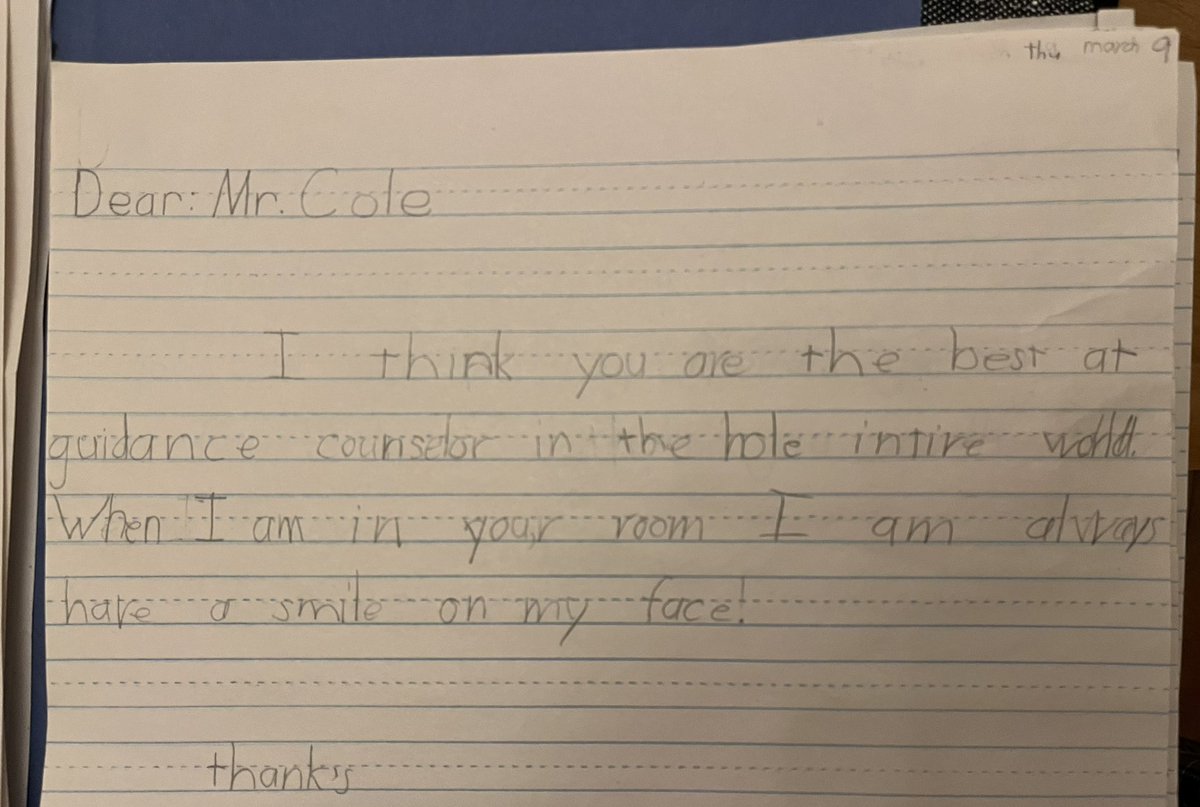 thu march 9
Dear: Mr. Cole
I think you are the best at
guidance counselor in the hole intire world.
When I am in your room I am always
have a smile on my face!
thanks